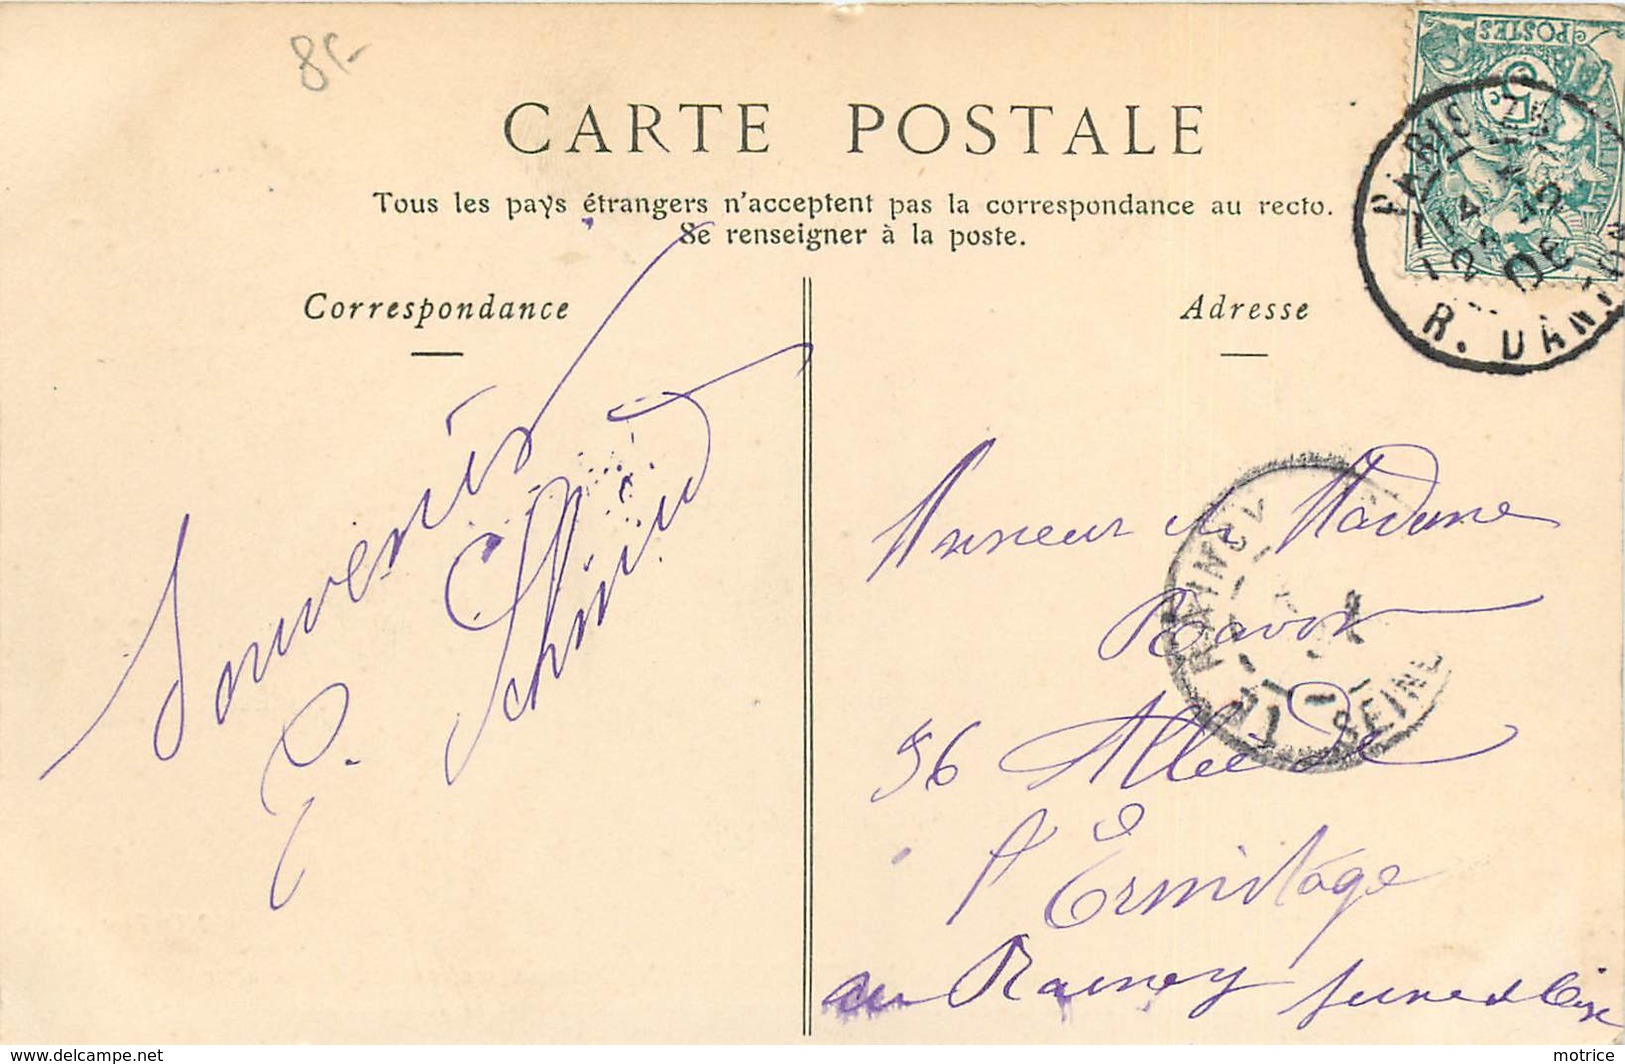 8f-
CARTE POSTALE
Tous les pays étrangers n'acceptent pas la correspondance au recto.
Se renseigner à la poste.
Correspondance
Adresse
POSTES
5c
PARIS
R. DANTON
Souvenirs
E. Schmid
Monsieur & Madame
Ravot
56 Allée de
l'Ermitage
au Raincy Seine et Oise
LE RAINCY
SEINE
https://www.delcampe.net
motrice